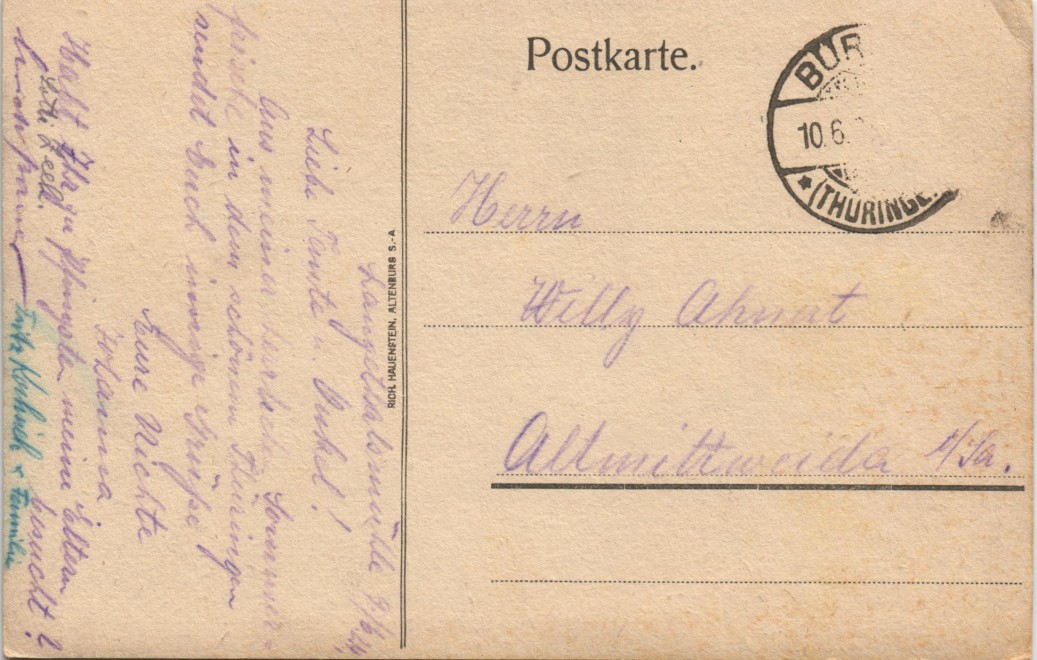 Postkarte.
BÜR
10.6.
(THÜRINGE
Herrn
Willy Ahnert
Altmittweida i/Sa.
RICH. HAUENSTEIN, ALTENBURG S.-A
Langethalsmühle 9/6 24
Liebe Tante u Onkel!
Aus meiner kurzen Sommer-
frische in dem schönen Thüringen
sendet Euch innige Grüße
Eure Nichte
Johanna
Habt Ihr zu Pfingsten meine Eltern
besucht?
Fritz & Familie